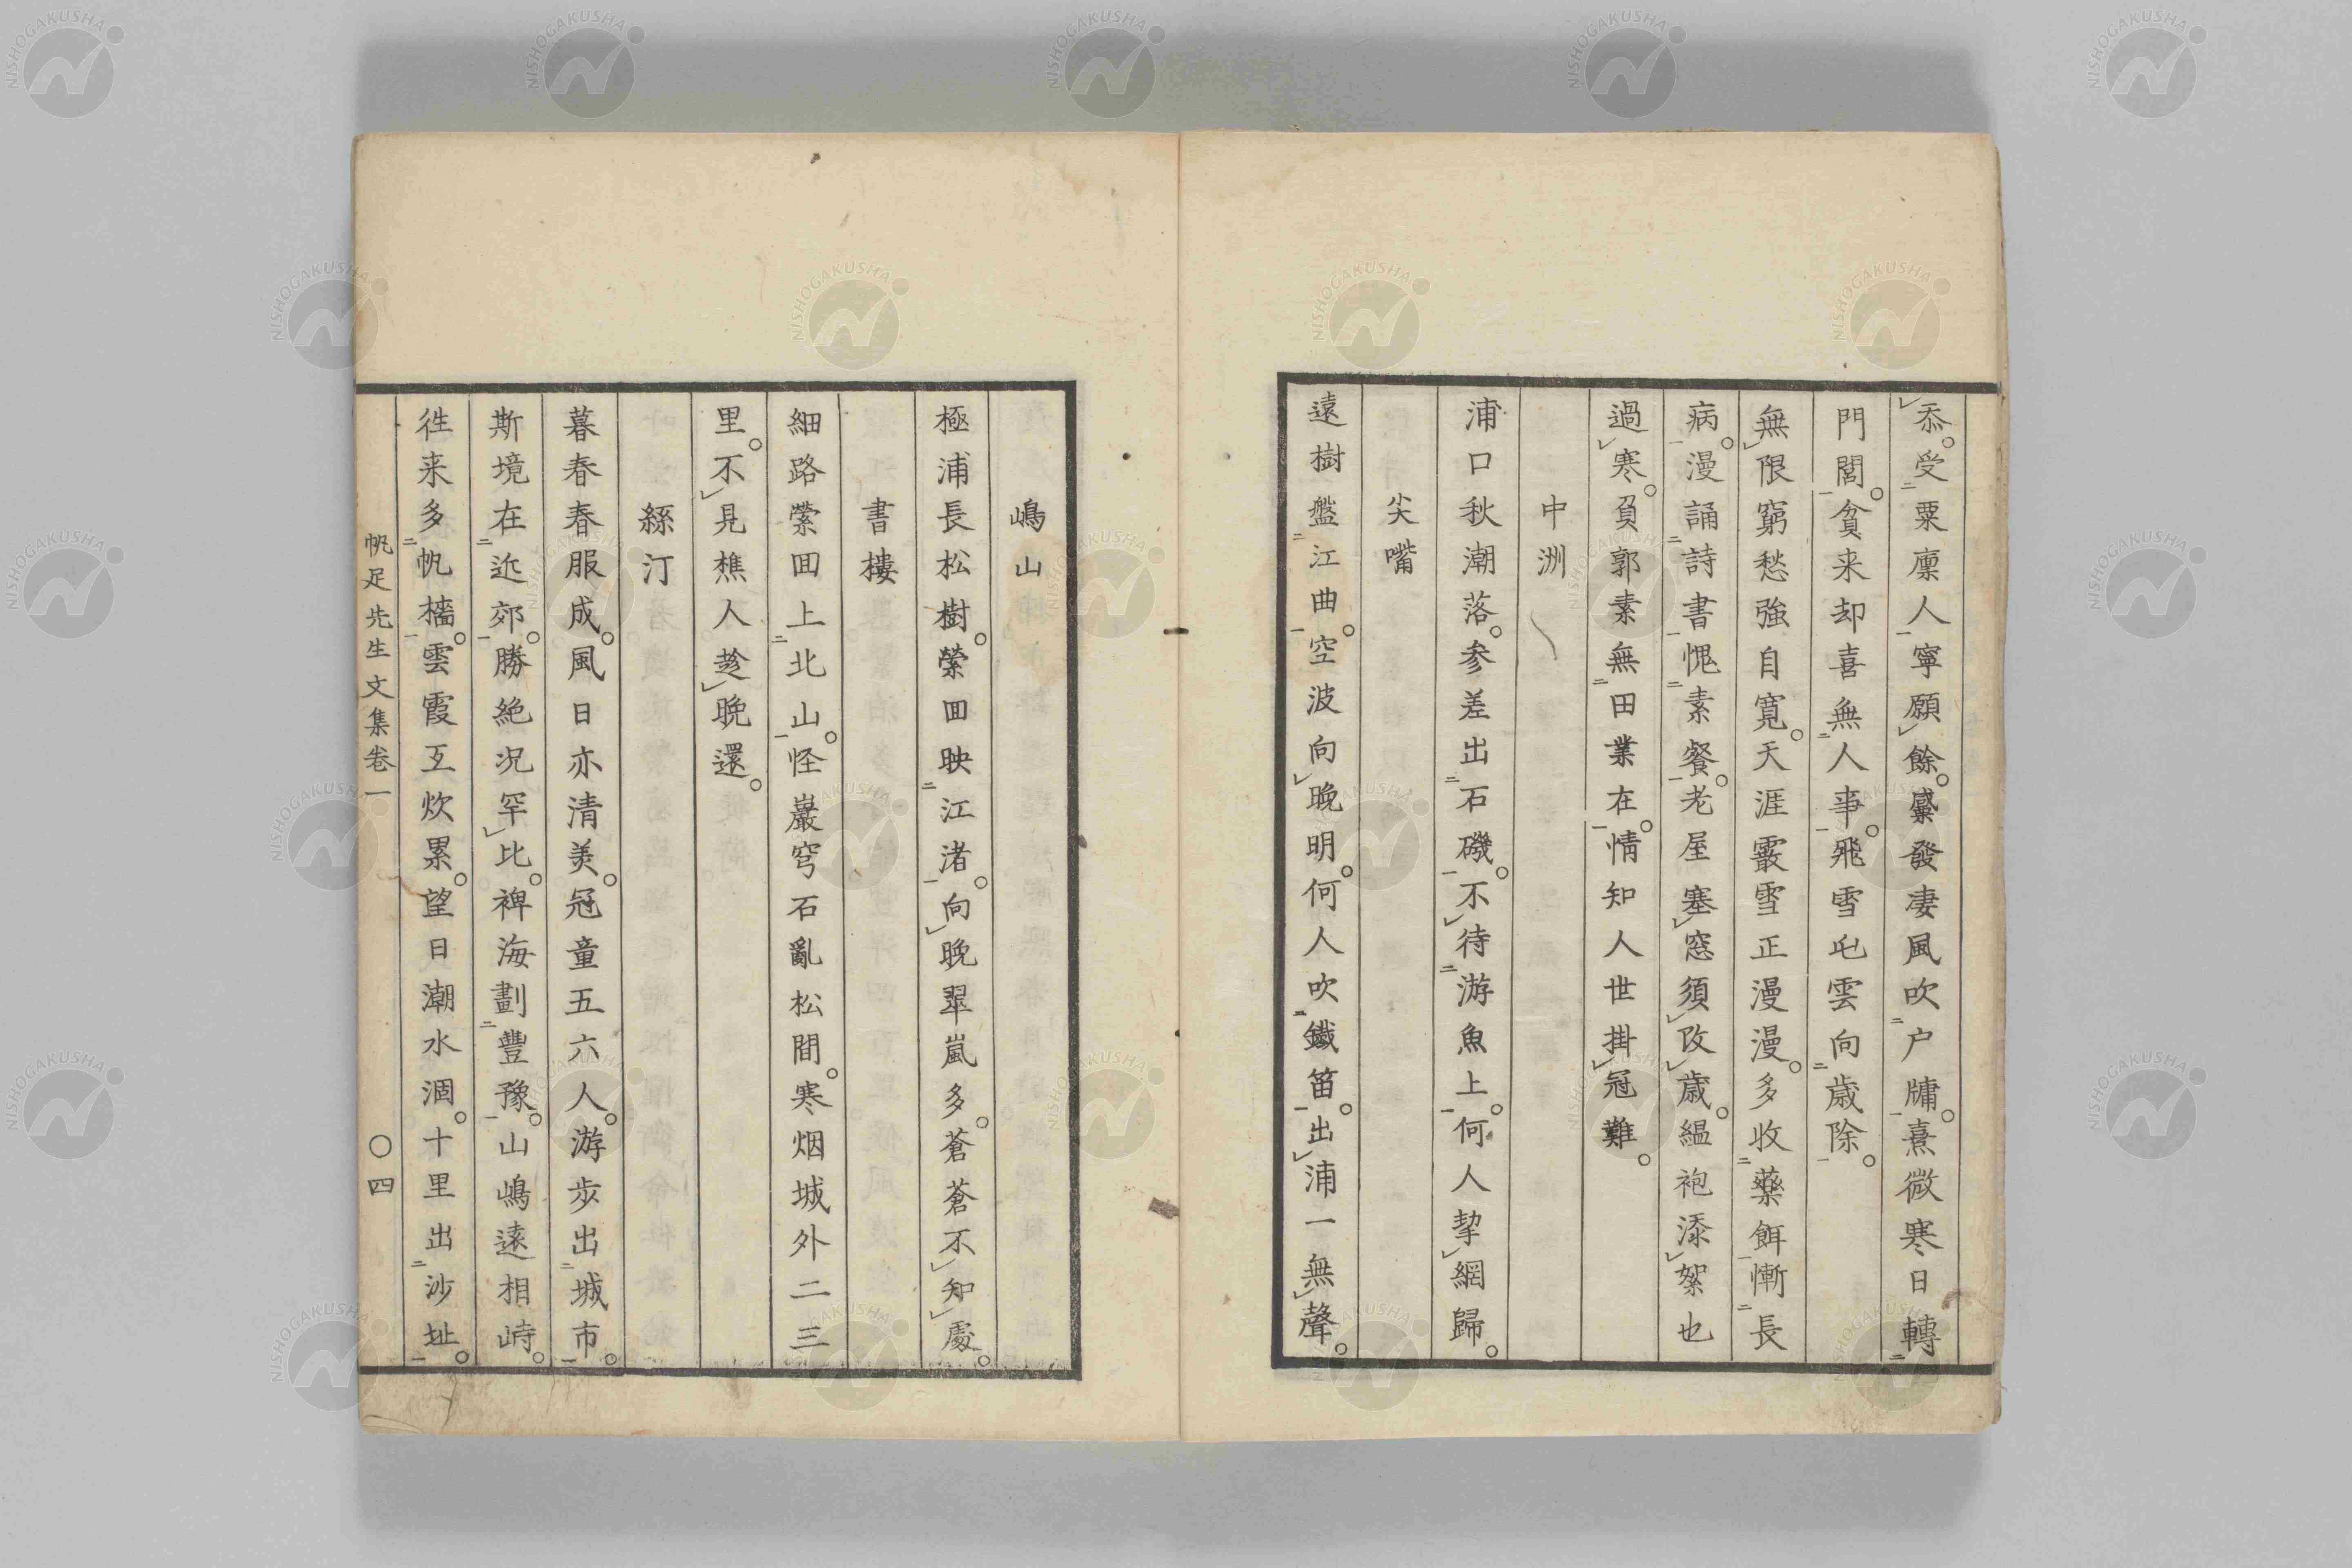 忝。受粟廪人寧願餘。觱發凄風吹户牗。熹微寒日轉
門閭。貧来却喜無人事。飛雪屯雲向歳除。
無限窮愁強自寛。天涯霰雪正漫漫。多收藥餌慚長
病。漫誦詩書愧素餐。老屋塞窓須改歳。緼袍添絮也
過寒。負郭素無田業在。情知人世掛冠難。
中洲
浦口秋潮落。参差出石磯。不待游魚上。何人挈網歸。
尖嘴
遠樹盤江曲。空波向晩明。何人吹鐵笛。出浦一無聲。
嶋山
極浦長松樹。縈回映江渚。向晩翠嵐多。蒼蒼不知處。
書樓
細路縈回上北山。怪巖穹石亂松間。寒烟城外二三
里。不見樵人趁晩還。
絲汀
暮春春服成。風日亦清美。冠童五六人。游歩出城市。
斯境在近郊。勝絶况罕比。裨海劃豐豫。山嶋遠相峙。
徃来多帆檣。雲霞互炊累。望日潮水涸。十里出沙址。
帆足先生文集巻一
〇四
NISHOGAKUSHA